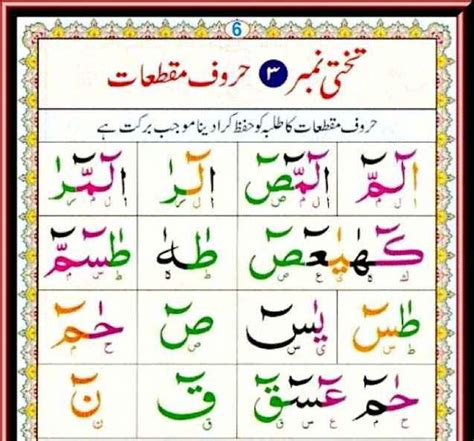 6
تختی نمبر ۳ حروف مقطعات
حروف مقطعات کا طلبہ کو حفظ کرا دینا موجب برکت ہے
الٓمّٓ الٓمّٓصٓ الٓرٰ الٓمّٓرٰ
كٓهٰيٰعٓصٓ طٰهٰ طٰسٓمّٓ
طٰسٓ يٰسٓ صٓ حٰمٓ
حٰمٓ عٓسٓقٓ قٓ نٓ